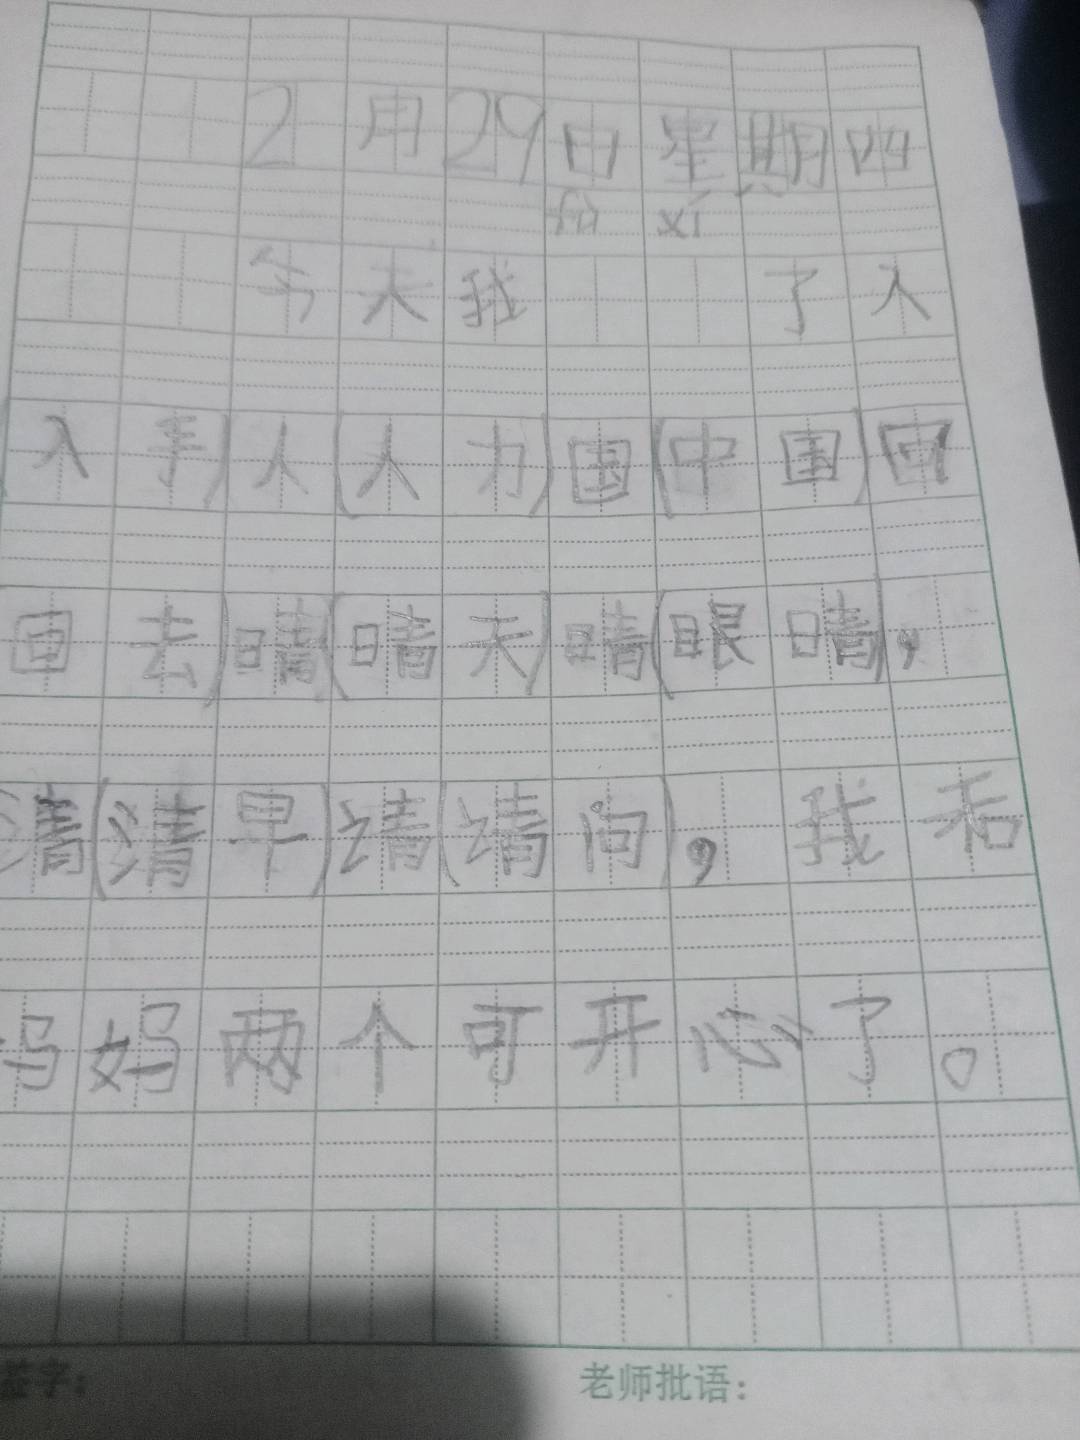 2月29日星期四
fù xí
今天我 了入
(入手)人(人力)国(中国)回
(回去)晴(晴天)晴(眼晴),
清(清早)请(请问),我和
妈妈两个可开心了。
签字:
老师批语: